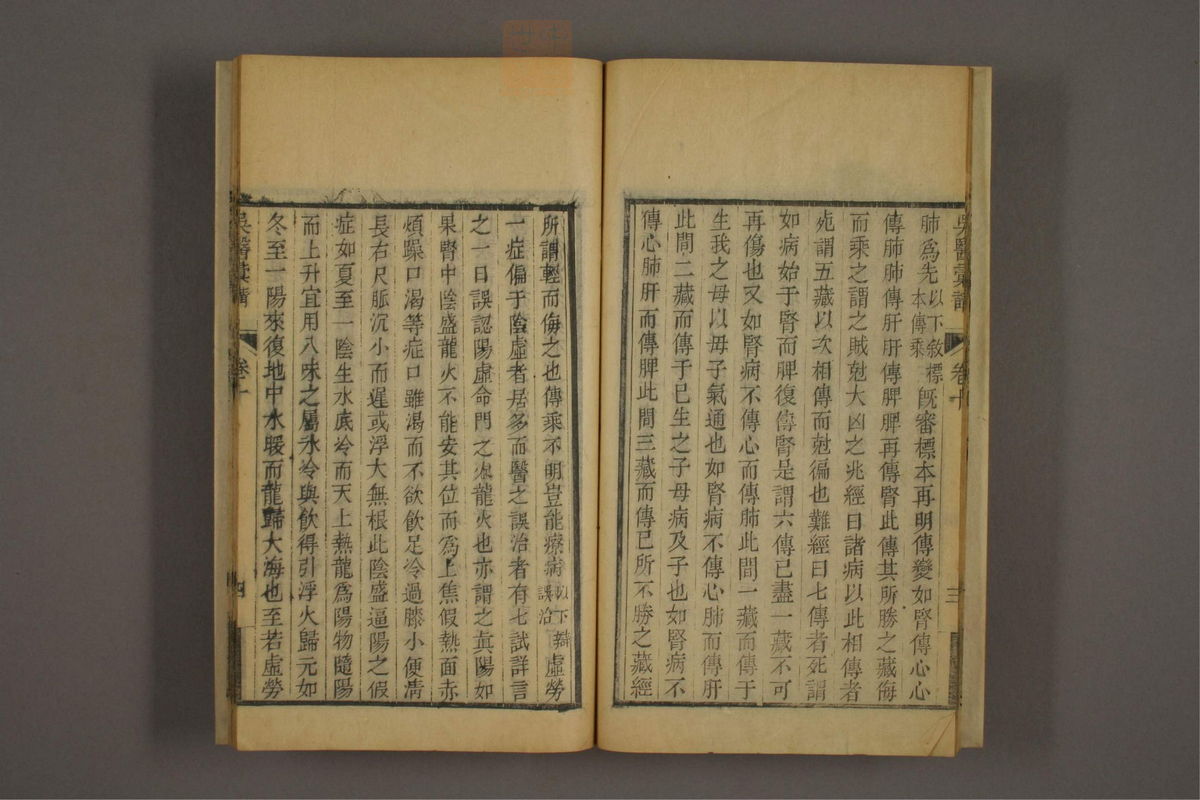 吳醫彙講 卷十 三
肺爲先以下敘標本傳乘旣審標本再明傳變如腎傳心心
傳肺肺傳肝肝傳脾脾再傳腎此傳其所勝之藏侮
而乘之謂之賊尅大凶之兆經曰諸病以此相傳者
死謂五藏以次相傳而尅徧也難經曰七傳者死謂
如病始于腎而脾復傳腎是謂六傳已盡一藏不可
再傷也又如腎病不傳心而傳肺此間一藏而傳于
生我之母以母子氣通也如腎病不傳心肺而傳肝
此間二藏而傳于已生之子母病及子也如腎病不
傳心肺肝而傳脾此間三藏而傳已所不勝之藏經
所謂輕而侮之也傳乘不明豈能療病以下辯誤治虛勞
一症偏于陰虛者居多而醫之誤治者有七試詳言
之一曰誤認陽虛命門之火龍火也亦謂之眞陽如
果腎中陰盛龍火不能安其位而爲上焦假熱面赤
煩躁口渴等症口雖渴而不欲飲足冷過膝小便淸
長右尺脈沉小而遲或浮大無根此陰盛逼陽之假
症如夏至一陰生水底冷而天上熱龍爲陽物隨陽
而上升宜用八味之屬氷冷與飲得引浮火歸元如
冬至一陽來復地中水暖而龍歸大海也至若虛勞
吳醫彙講 卷十 四